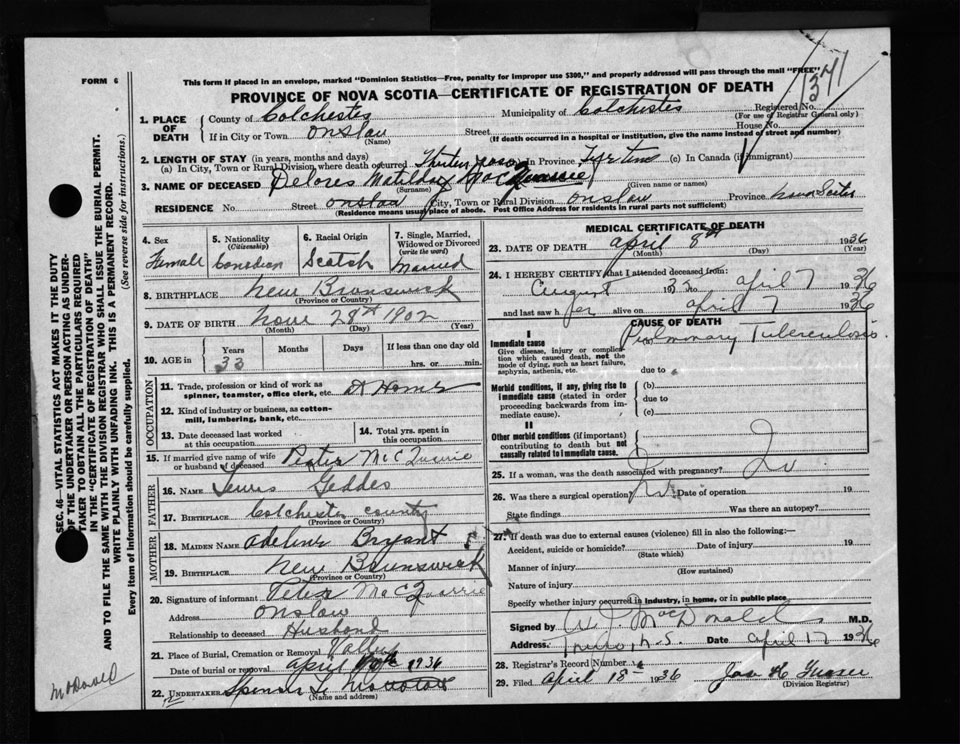 FORM 6
This form if placed in an envelope, marked "Dominion Statistics—Free, penalty for improper use $300," and properly addressed will pass through the mail "FREE"
PROVINCE OF NOVA SCOTIA—CERTIFICATE OF REGISTRATION OF DEATH
Registered No.
(For use of Registrar General only)
1. PLACE OF DEATH
County of Colchester
Municipality of Colchester
If in City or Town Onslow
(Name)
Street
House No.
(If death occurred in a hospital or institution, give the name instead of street and number)
2. LENGTH OF STAY (in years, months and days)
(a) In City, Town or Rural Division where death occurred Thirteen years in Province (c) In Canada (if immigrant)
3. NAME OF DECEASED Delores Matilda
(Surname) (Given name or names)
RESIDENCE No. Street Onslow City, Town or Rural Division Onslow Province Nova Scotia
(Residence means usual place of abode. Post Office Address for residents in rural parts not sufficient)
4. Sex
Female
5. Nationality (Citizenship)
Canadian
6. Racial Origin
Scotch
7. Single, Married, Widowed or Divorced (write the word)
Married
8. BIRTHPLACE New Brunswick
(Province or Country)
9. DATE OF BIRTH 28th 1902
(Month) (Day) (Year)
10. AGE in Years Months Days If less than one day old
33 hrs. or min.
OCCUPATION
11. Trade, profession or kind of work as spinner, teamster, office clerk, etc. At Home
12. Kind of industry or business, as cotton-mill, lumbering, bank, etc.
13. Date deceased last worked at this occupation
14. Total yrs. spent in this occupation
15. If married give name of wife or husband of deceased Peter McQuarrie
FATHER
16. NAME Geddes
17. BIRTHPLACE Colchester County
(Province or Country)
MOTHER
18. MAIDEN NAME Adeline Bryant
19. BIRTHPLACE New Brunswick
(Province or Country)
20. Signature of informant Peter MacQuarrie
Address Onslow
Relationship to deceased Husband
21. Place of Burial, Cremation or Removal
Date of burial or removal April 1936
22. UNDERTAKER
(Name and address)
MEDICAL CERTIFICATE OF DEATH
23. DATE OF DEATH April 8th 1936
(Month) (Day) (Year)
24. I HEREBY CERTIFY that I attended deceased from:
August 1933 to April 7 1936
and last saw her alive on April 7 1936
CAUSE OF DEATH
I
Immediate cause
Give disease, injury or complication which caused death, not the mode of dying, such as heart failure, asphyxia, asthenia, etc.
Pulmonary Tuberculosis
due to
Morbid conditions, if any, giving rise to immediate cause (stated in order proceeding backwards from immediate cause).
(b)
due to
(c)
II
Other morbid conditions (if important) contributing to death but not causally related to immediate cause.
25. If a woman, was the death associated with pregnancy? No
26. Was there a surgical operation? No Date of operation 19
State findings Was there an autopsy?
27. If death was due to external causes (violence) fill in also the following:—
Accident, suicide or homicide? Date of injury 19
(State which)
Manner of injury
(How sustained)
Nature of injury
Specify whether injury occurred in industry, in home, or in public place
Signed by MacDonald M.D.
Address Truro, N.S. Date April 17 1936
28. Registrar's Record Number
29. Filed April 18 1936
(Division Registrar)
SEC. 46—VITAL STATISTICS ACT MAKES IT THE DUTY OF THE UNDERTAKER OR PERSON ACTING AS UNDERTAKER TO OBTAIN ALL THE PARTICULARS REQUIRED IN THE "CERTIFICATE OF REGISTRATION OF DEATH" AND TO FILE THE SAME WITH THE DIVISION REGISTRAR WHO SHALL ISSUE THE BURIAL PERMIT.
WRITE PLAINLY WITH UNFADING INK. THIS IS A PERMANENT RECORD.
Every item of information should be carefully supplied. (See reverse side for instructions.)